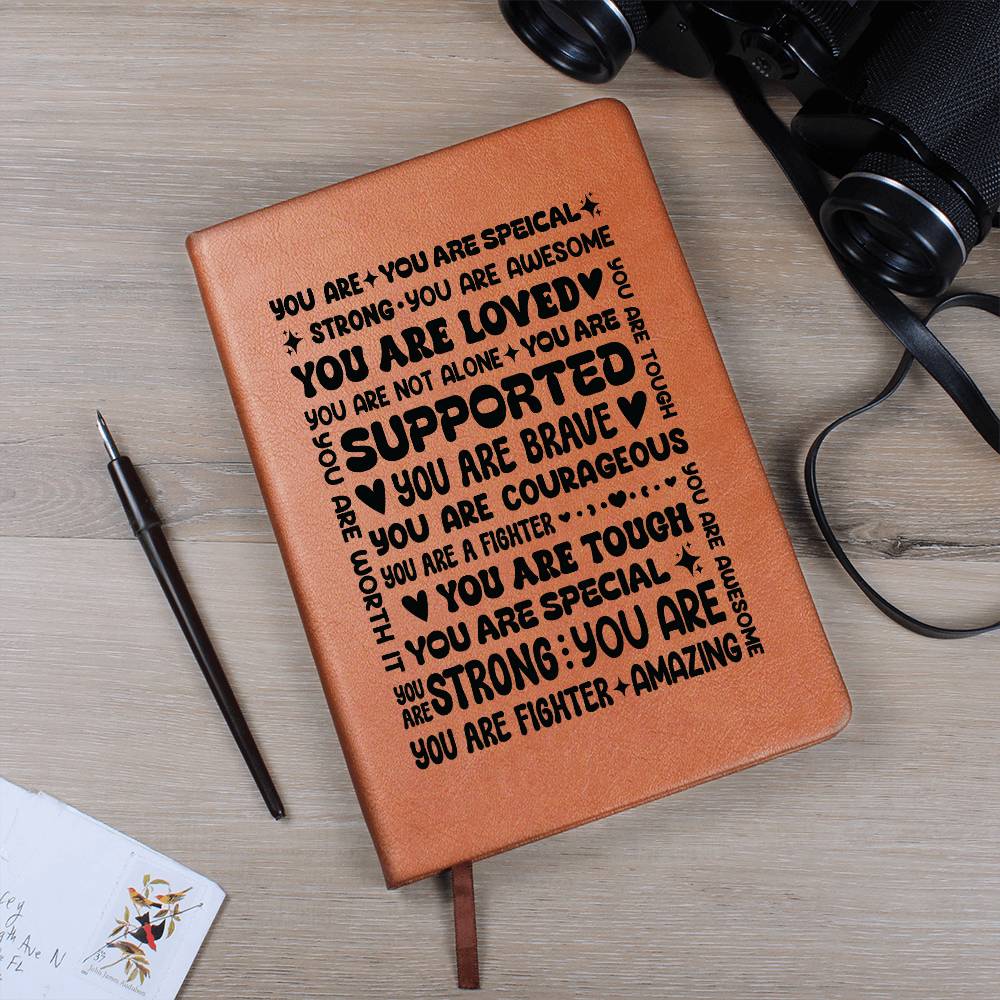 YOU ARE YOU ARE SPEICAL
STRONG • YOU ARE AWESOME
YOU ARE LOVED
YOU ARE NOT ALONE YOU ARE
SUPPORTED
YOU ARE TOUGH
YOU ARE WORTH IT
YOU ARE BRAVE
YOU ARE COURAGEOUS
YOU ARE A FIGHTER
YOU ARE TOUGH
YOU ARE AWESOME
YOU ARE SPECIAL
YOU ARE STRONG : YOU ARE
YOU ARE FIGHTER AMAZING
ey
9th Ave N
FL
37
John James Audubon